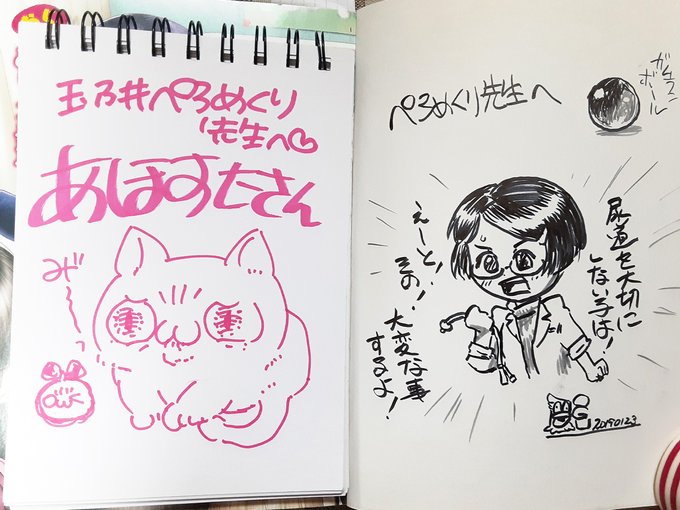 玉乃井ぺろめくり
先生へ♡
あほすたさん
みざーっ
OWK
ぺろめくり先生へ
ガチャ
ボール
尿道を大切に
しない子は！
えーと！
その！
大変な事
するよ！
20190123